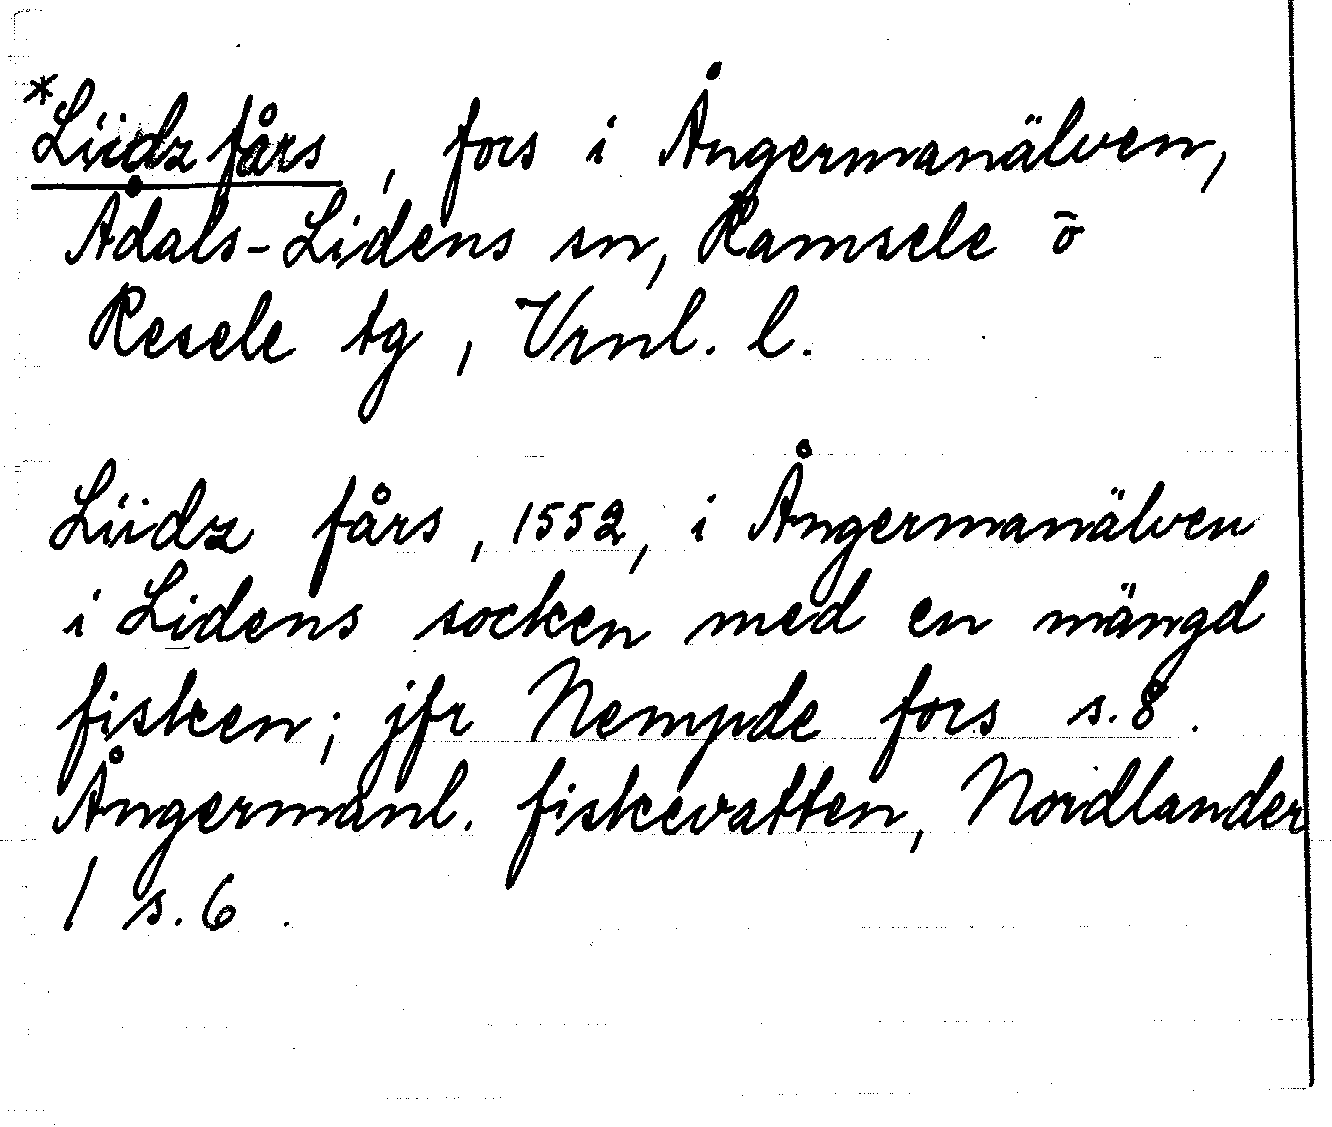 *Liidz fårs, fors i Ångermanälven,
Ådals-Lidens sn, Ramsele o
Resele tg, Vrnl. l.
Liidz fårs, 1552, i Ångermanälven
i Lidens socken med en mängd
fisken; jfr Nempde fors s. 8.
Ångermanl. fiskevatten, Nordlander
1 s. 6.